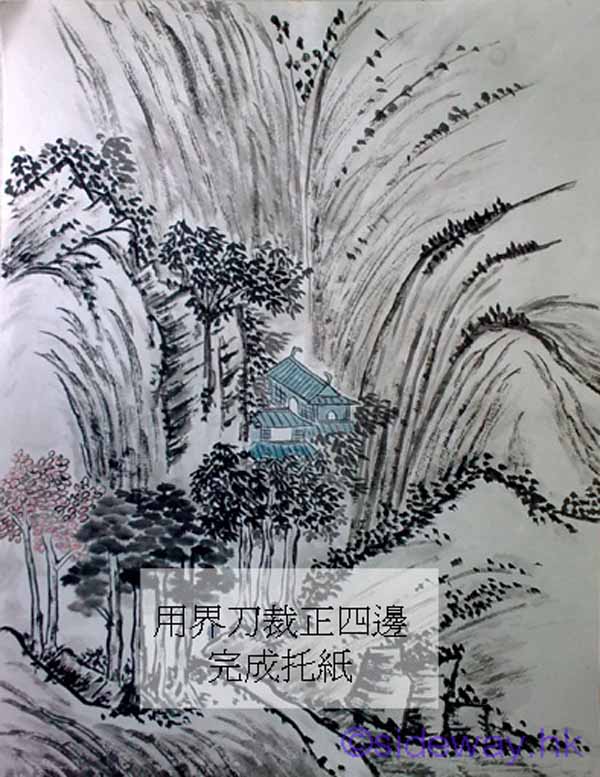 用界刀裁正四邊
完成托紙
©sideway.hk